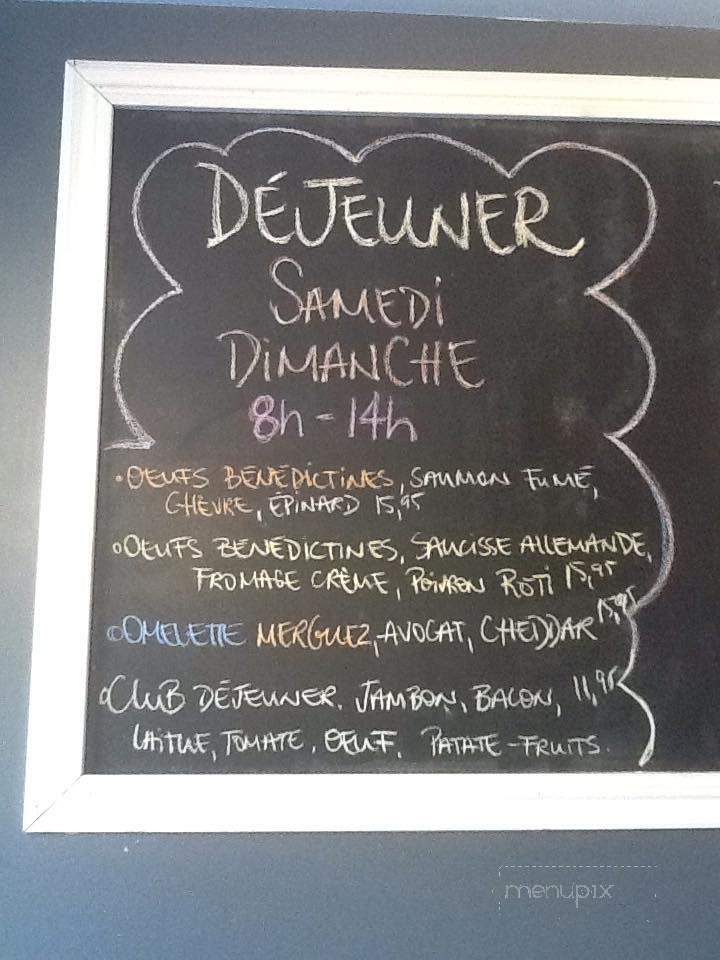 DÉJEUNER
SAMEDI
DIMANCHE
8h - 14h
• OEUFS BÉNÉDICTINES, SAUMON FUMÉ,
CHÈVRE, ÉPINARD 15,95
• OEUFS BÉNÉDICTINES, SAUCISSE ALLEMANDE,
FROMAGE CRÈME, POIVRON RÔTI 15,95
• OMELETTE MERGUEZ, AVOCAT, CHEDDAR 15,95
• CLUB DÉJEUNER. JAMBON, BACON, 11,95
LAITUE, TOMATE, OEUF, PATATE - FRUITS.
menupix